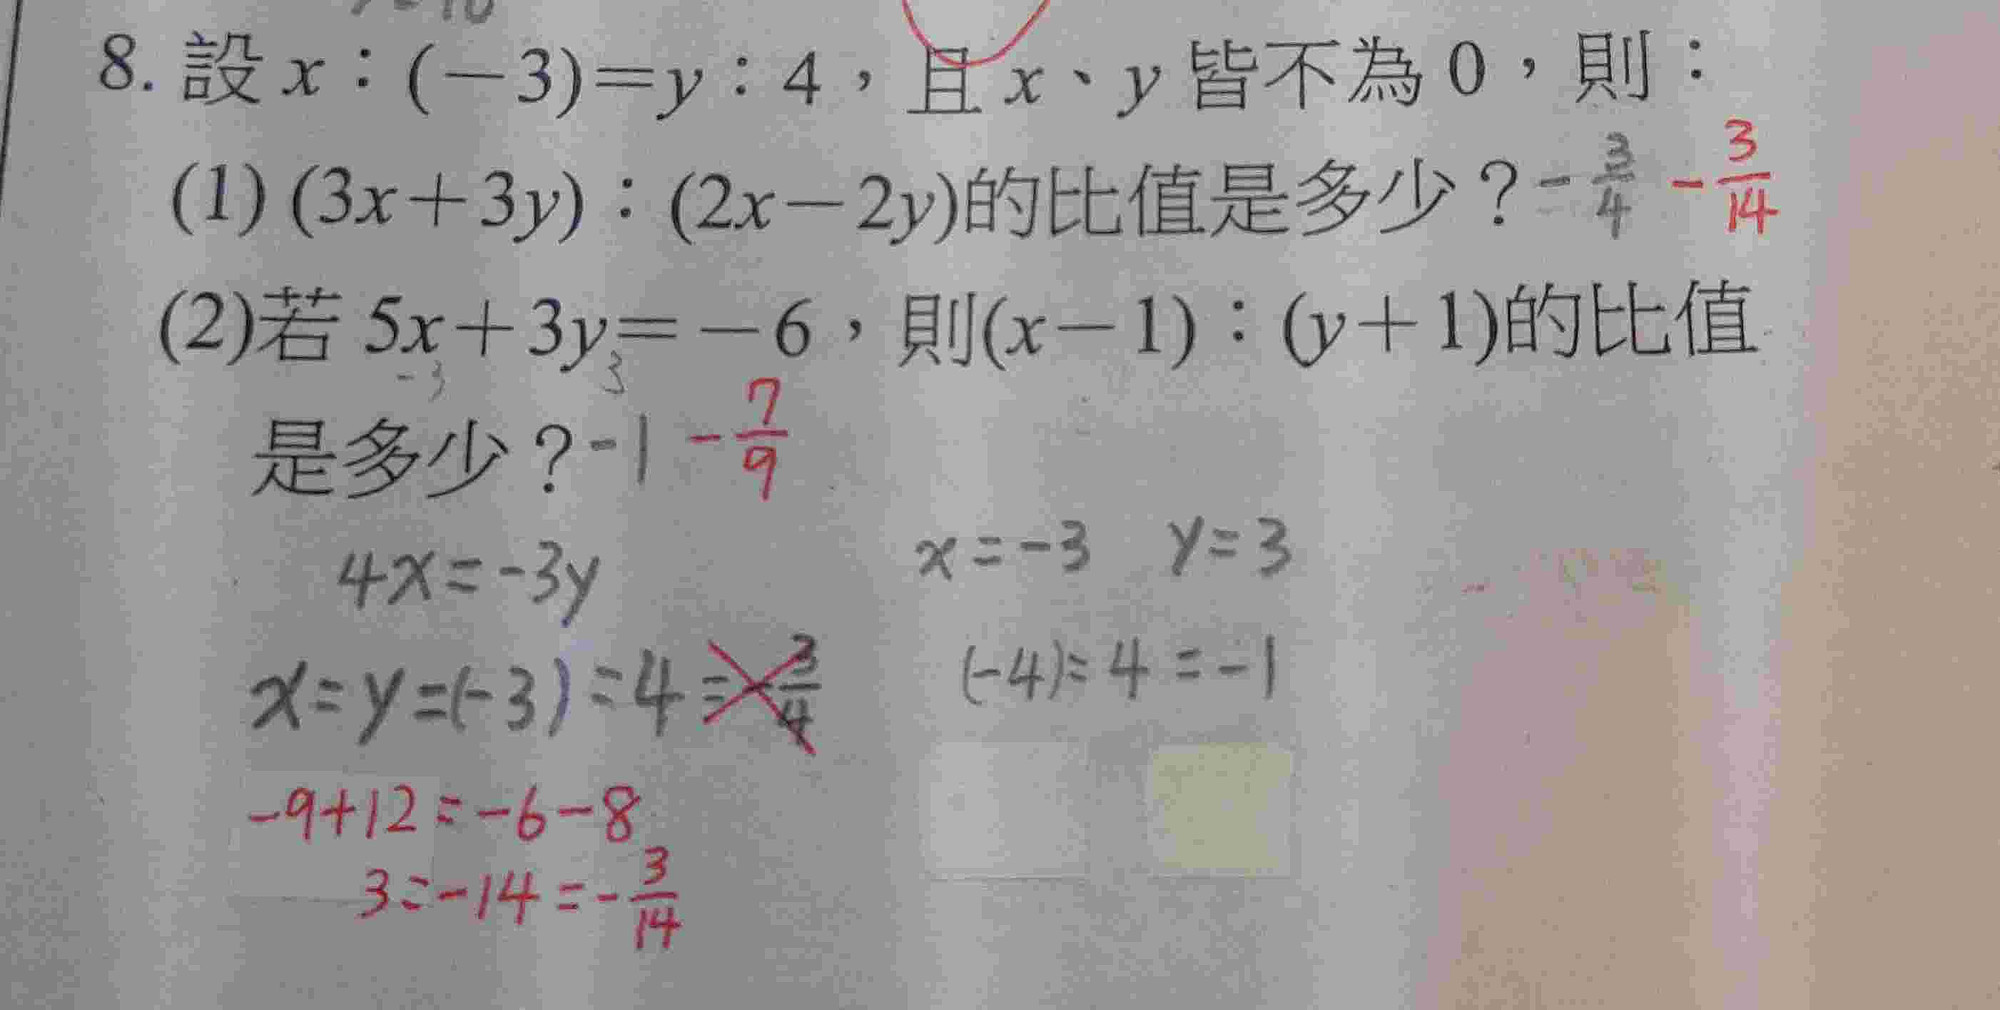 8. 設 x：(－3)＝y：4，且 x、y 皆不為 0，則：
(1) (3x＋3y)：(2x－2y)的比值是多少？ -3/4 -3/14
(2)若 5x＋3y＝－6，則(x－1)：(y＋1)的比值
-3 3
是多少？ -1 -7/9
4x=-3y
x=-3 y=3
x:y=(-3):4=-3/4
(-4):4=-1
-9+12:-6-8
3:-14=-3/14